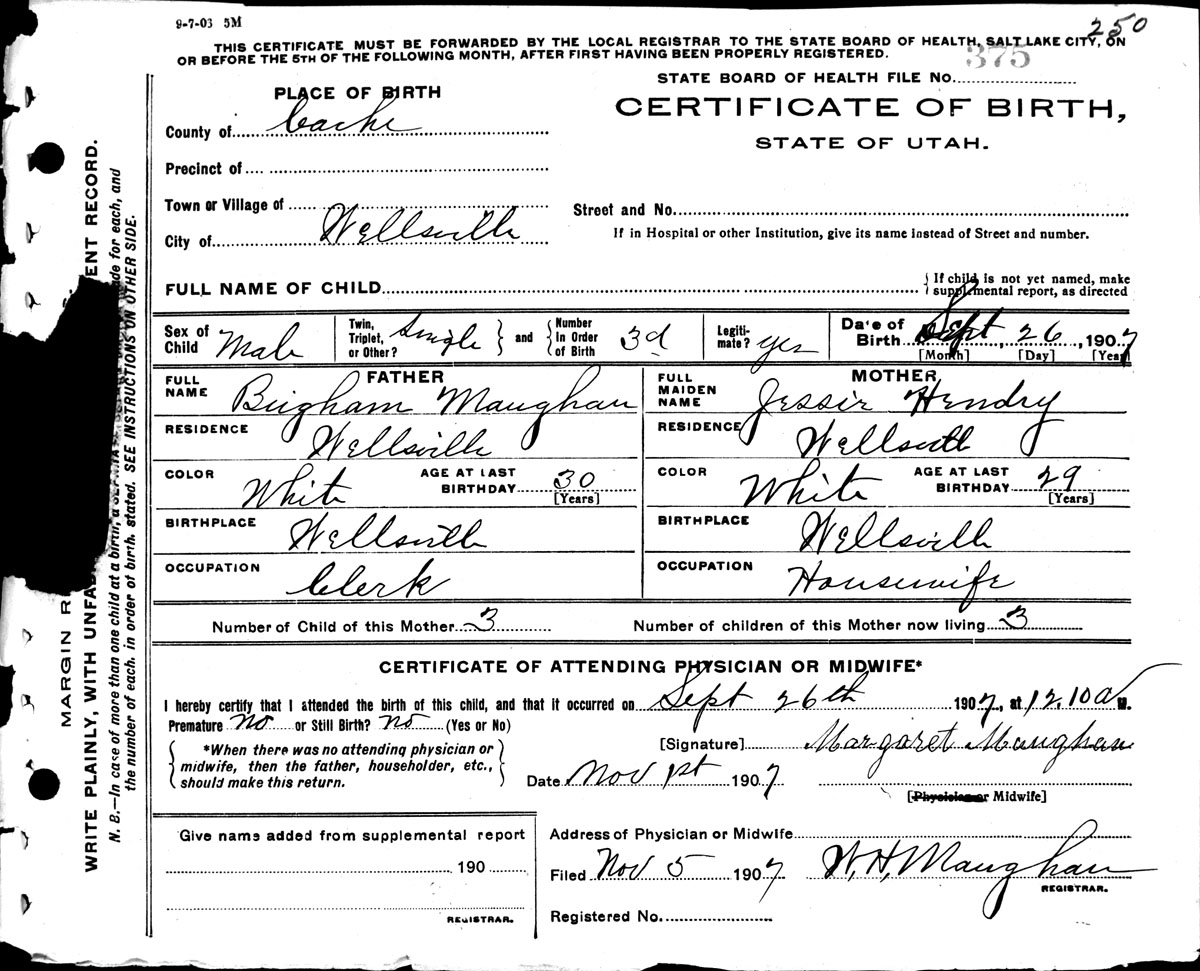 9-7-03 5M
250
THIS CERTIFICATE MUST BE FORWARDED BY THE LOCAL REGISTRAR TO THE STATE BOARD OF HEALTH, SALT LAKE CITY, ON
OR BEFORE THE 5TH OF THE FOLLOWING MONTH, AFTER FIRST HAVING BEEN PROPERLY REGISTERED.
375
STATE BOARD OF HEALTH FILE No.
PLACE OF BIRTH
CERTIFICATE OF BIRTH,
STATE OF UTAH.
County of Cache
Precinct of
Town or Village of
Street and No.
City of Wellsville
If in Hospital or other Institution, give its name instead of Street and number.
FULL NAME OF CHILD
{ If child is not yet named, make
supplemental report, as directed
Sex of Child Male
Twin, Triplet, or Other? Single } and { Number In Order of Birth 3d
Legitimate? yes
Date of Birth Sept, 26, 1907
[Month] [Day] [Year]
FATHER
FULL NAME Brigham Maughan
RESIDENCE Wellsville
COLOR White AGE AT LAST BIRTHDAY 30
[Years]
BIRTHPLACE Wellsville
OCCUPATION Clerk
MOTHER
FULL MAIDEN NAME Jessie Hendry
RESIDENCE Wellsville
COLOR White AGE AT LAST BIRTHDAY 29
[Years]
BIRTHPLACE Wellsville
OCCUPATION Housewife
Number of Child of this Mother 3 Number of children of this Mother now living 3
CERTIFICATE OF ATTENDING PHYSICIAN OR MIDWIFE*
I hereby certify that I attended the birth of this child, and that it occurred on Sept 26th 1907, at 12.10 a M.
Premature no or Still Birth? no (Yes or No)
{ *When there was no attending physician or
midwife, then the father, householder, etc.,
should make this return. }
[Signature] Margaret Maughan
Date Nov 1st 1907
[Physician or Midwife]
Give name added from supplemental report
190
REGISTRAR.
Address of Physician or Midwife
Filed Nov 5 1907 W. H. Maughan
REGISTRAR.
Registered No.
MARGIN R
WRITE PLAINLY, WITH UNFAD ENT RECORD.
N. B.—In case of more than one child at a birth, a SEPARA de for each, and
the number of each, in order of birth, stated. SEE INSTRUCTIONS ON OTHER SIDE.